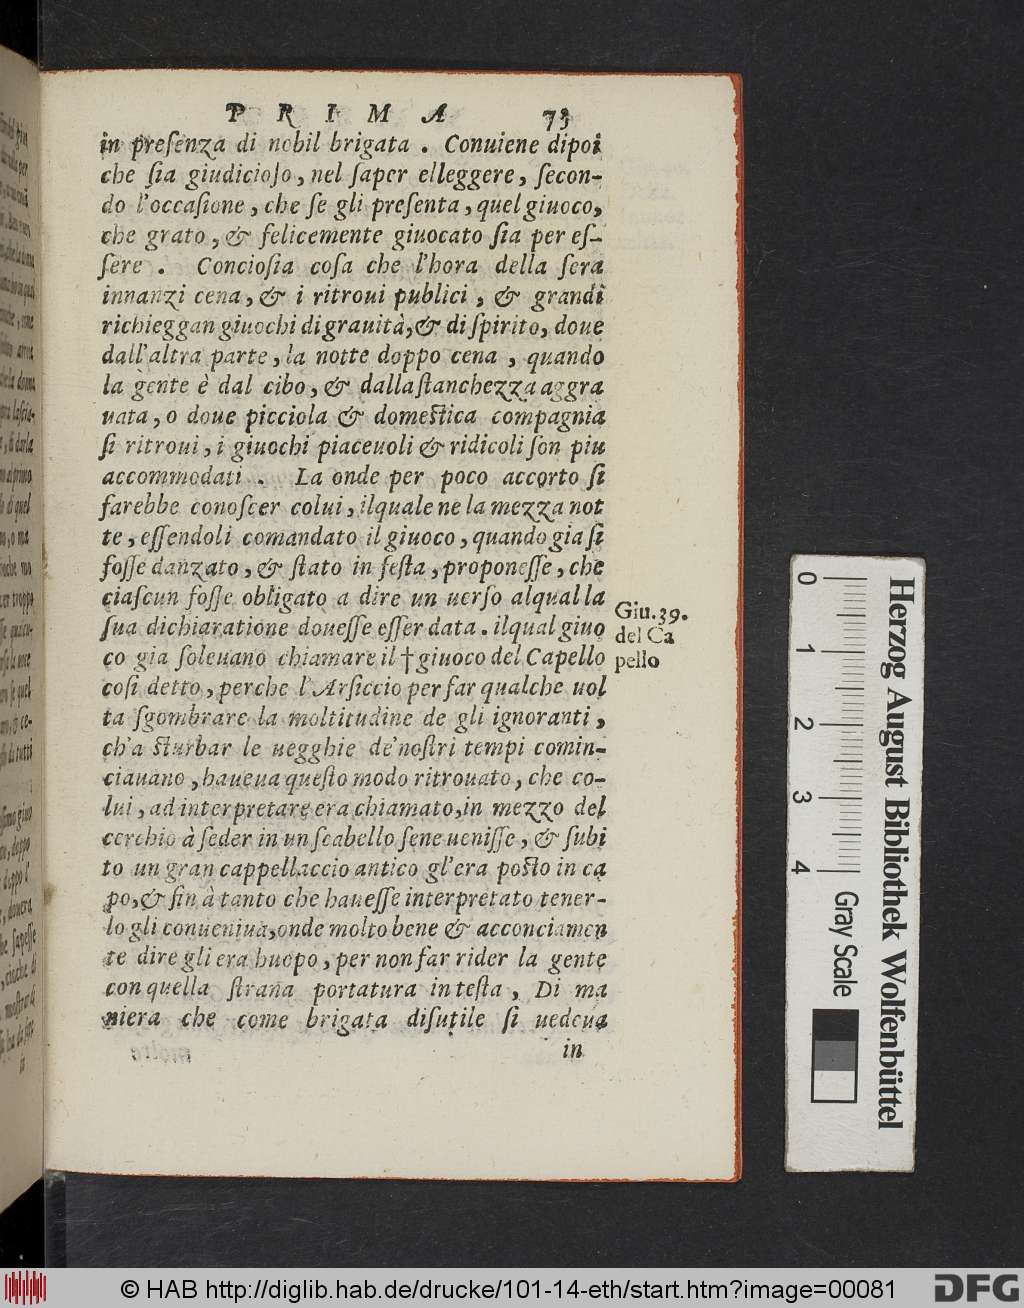 PRIMA 73
in preſenza di nobil brigata . Conuiene dipoi
che ſia giudicioſo, nel ſaper elleggere, ſecon-
do l'occaſione, che ſe gli preſenta, quel giuoco,
che grato, & felicemente giuocato ſia per eſ-
ſere . Concioſia coſa che l'hora della ſera
innanzi cena, & i ritroui publici, & grandi
richieggan giuochi di grauità, & di ſpirito, doue
dall'altra parte, la notte doppo cena, quando
la gente è dal cibo, & dalla ſtanchezza aggra
uata, o doue picciola & domeſtica compagnia
ſi ritroui, i giuochi piaceuoli & ridicoli ſon piu
accommodati . La onde per poco accorto ſi
farebbe conoſcer colui, ilquale ne la mezza not
te, eſſendoli comandato il giuoco, quando gia ſi
foſſe danzato, & ſtato in feſta, proponeſſe, che
ciaſcun foſſe obligato a dire un uerſo alqual la
ſua dichiaratione doueſſe eſſer data. ilqual giuo
co gia ſoleuano chiamare il † giuoco del Capello
Giu.39.
del Ca
pello
coſi detto, perche l'Arſiccio per far qualche uol
ta ſgombrare la moltitudine de gli ignoranti,
ch'a ſturbar le uegghie de'noſtri tempi comin-
ciauano, haueua queſto modo ritrouato, che co-
lui, ad interpretare era chiamato, in mezzo del
cerchio à ſeder in un ſcabello ſene ueniſſe, & ſubi
to un gran cappellaccio antico gl'era poſto in ca
po, & fin à tanto che haueſſe interpretato tener-
lo gli conueniua, onde molto bene & acconciamen
te dire gli era huopo, per non far rider la gente
con quella ſtrana portatura in teſta, Di ma
niera che come brigata diſutile ſi uedeua
in
0 1 2 3 4
Gray Scale
Herzog August Bibliothek Wolfenbüttel
© HAB http://diglib.hab.de/drucke/101-14-eth/start.htm?image=00081
DFG